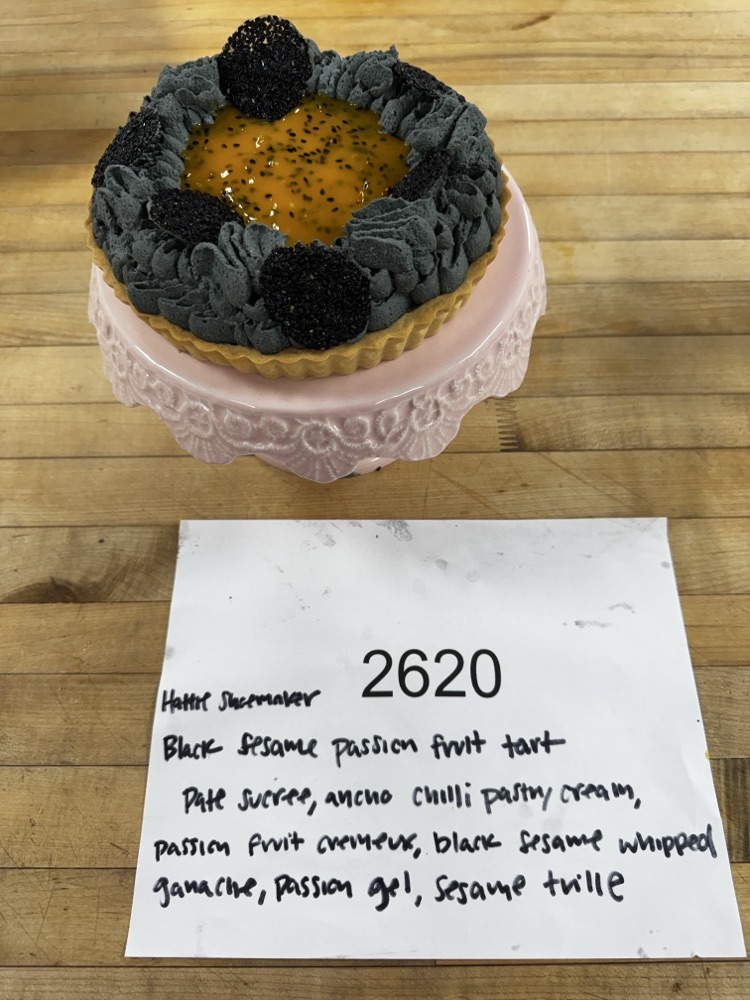 2620
Hattie Shoemaker
Black sesame passion fruit tart
Pate sucree, ancho chilli pastry cream,
passion fruit cremeux, black sesame whipped
ganache, passion gel, sesame tuille